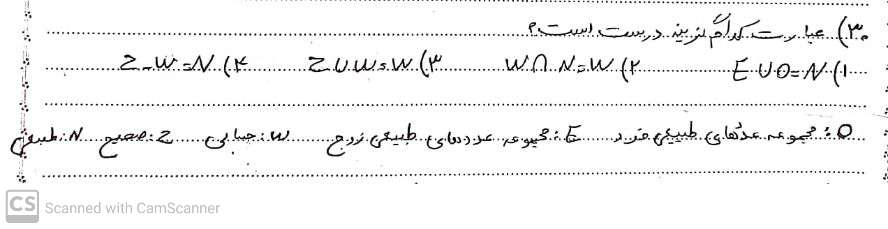 ۳۰) عبارت کدام گزینه درست است؟
۱) E ∪ O = N ۲) W ∩ N = W ۳) Z ∪ W = W ۴) Z - W = N
O : مجموعه عددهای طبیعی فرد E : مجموعه عددهای طبیعی زوج W : حسابی Z : صحیح N : طبیعی
CS Scanned with CamScanner